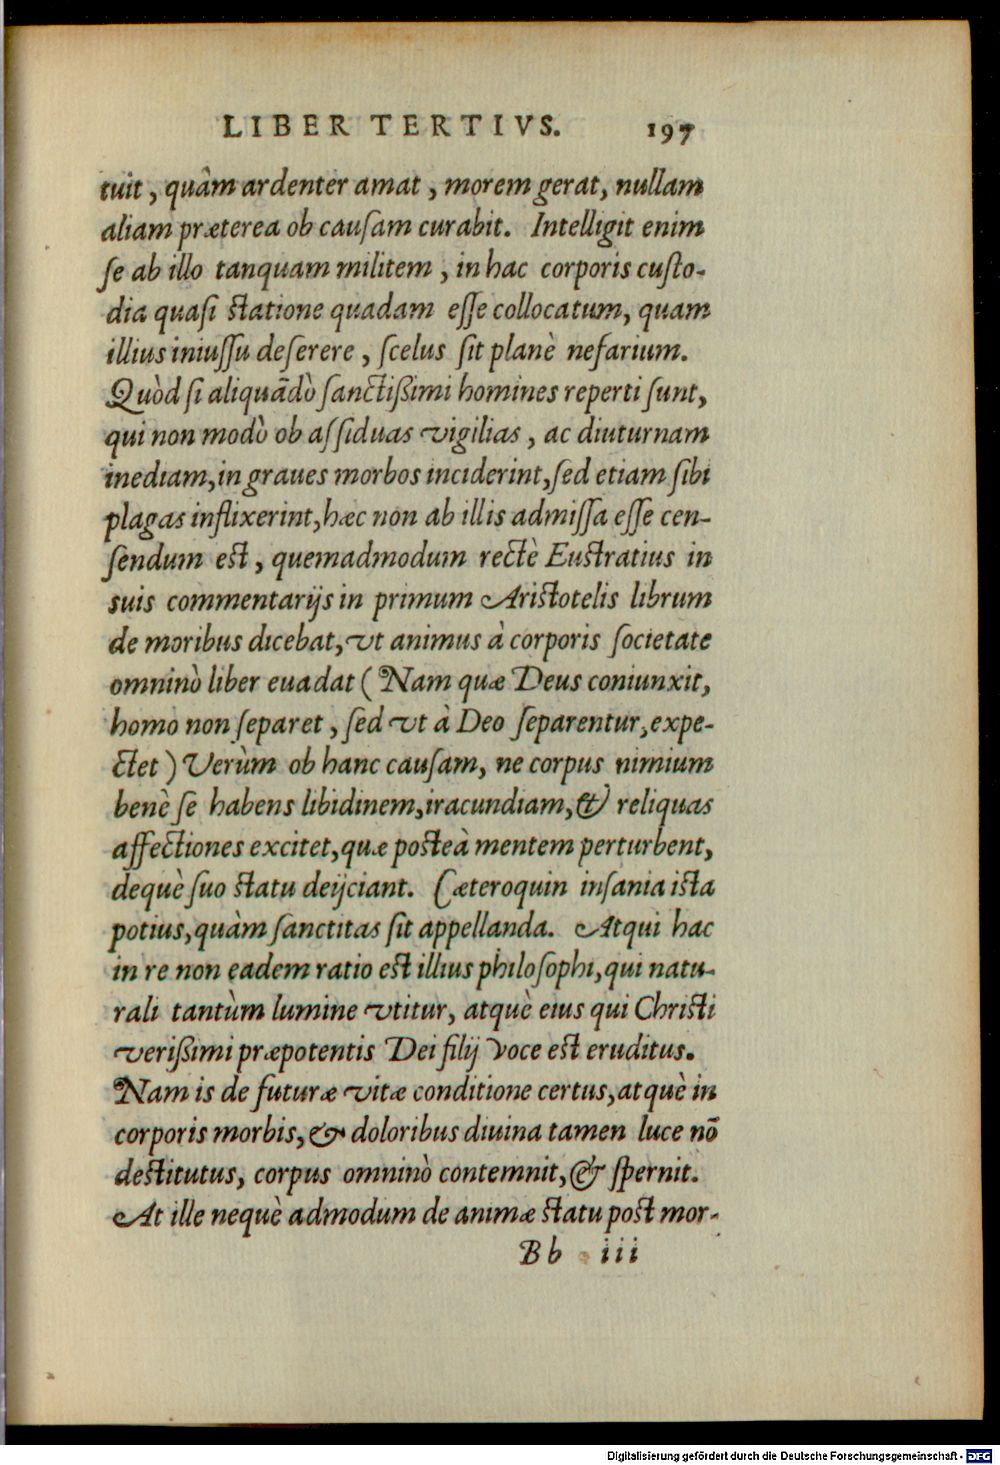 LIBER TERTIVS. 197
tuit, quâm ardenter amat, morem gerat, nullam
aliam præterea ob cauſam curabit. Intelligit enim
ſe ab illo tanquam militem, in hac corporis cuſto-
dia quaſi ſtatione quadam eſſe collocatum, quam
illius iniuſſu deſerere, ſcelus ſit planè nefarium.
Quòd ſi aliquādò ſanctißimi homines reperti ſunt,
qui non modò ob aſſiduas vigilias, ac diuturnam
inediam, in graues morbos inciderint, ſed etiam ſibi
plagas inflixerint, hæc non ab illis admiſſa eſſe cen-
ſendum eſt, quemadmodum rectè Euſtratius in
suis commentarijs in primum Ariſtotelis librum
de moribus dicebat, vt animus à corporis ſocietate
omninò liber euadat (Nam quæ Deus coniunxit,
homo non ſeparet, ſed vt à Deo ſeparentur, expe-
ctet) Verùm ob hanc cauſam, ne corpus nimium
benè ſe habens libidinem, iracundiam, & reliquas
affectiones excitet, quæ poſteà mentem perturbent,
dequè ſuo ſtatu deijciant. Cæteroquin inſania iſta
potius, quàm ſanctitas ſit appellanda. Atqui hac
in re non eadem ratio eſt illius philoſophi, qui natu-
rali tantùm lumine vtitur, atquè eius qui Chriſti
verißimi præpotentis Dei filij voce eſt eruditus.
Nam is de futuræ vitæ conditione certus, atquè in
corporis morbis, & doloribus diuina tamen luce nō
deſtitutus, corpus omninò contemnit, & ſpernit.
At ille nequè admodum de animæ ſtatu poſt mor-
Bb iii
Digitalisierung gefördert durch die Deutsche Forschungsgemeinschaft - DFG